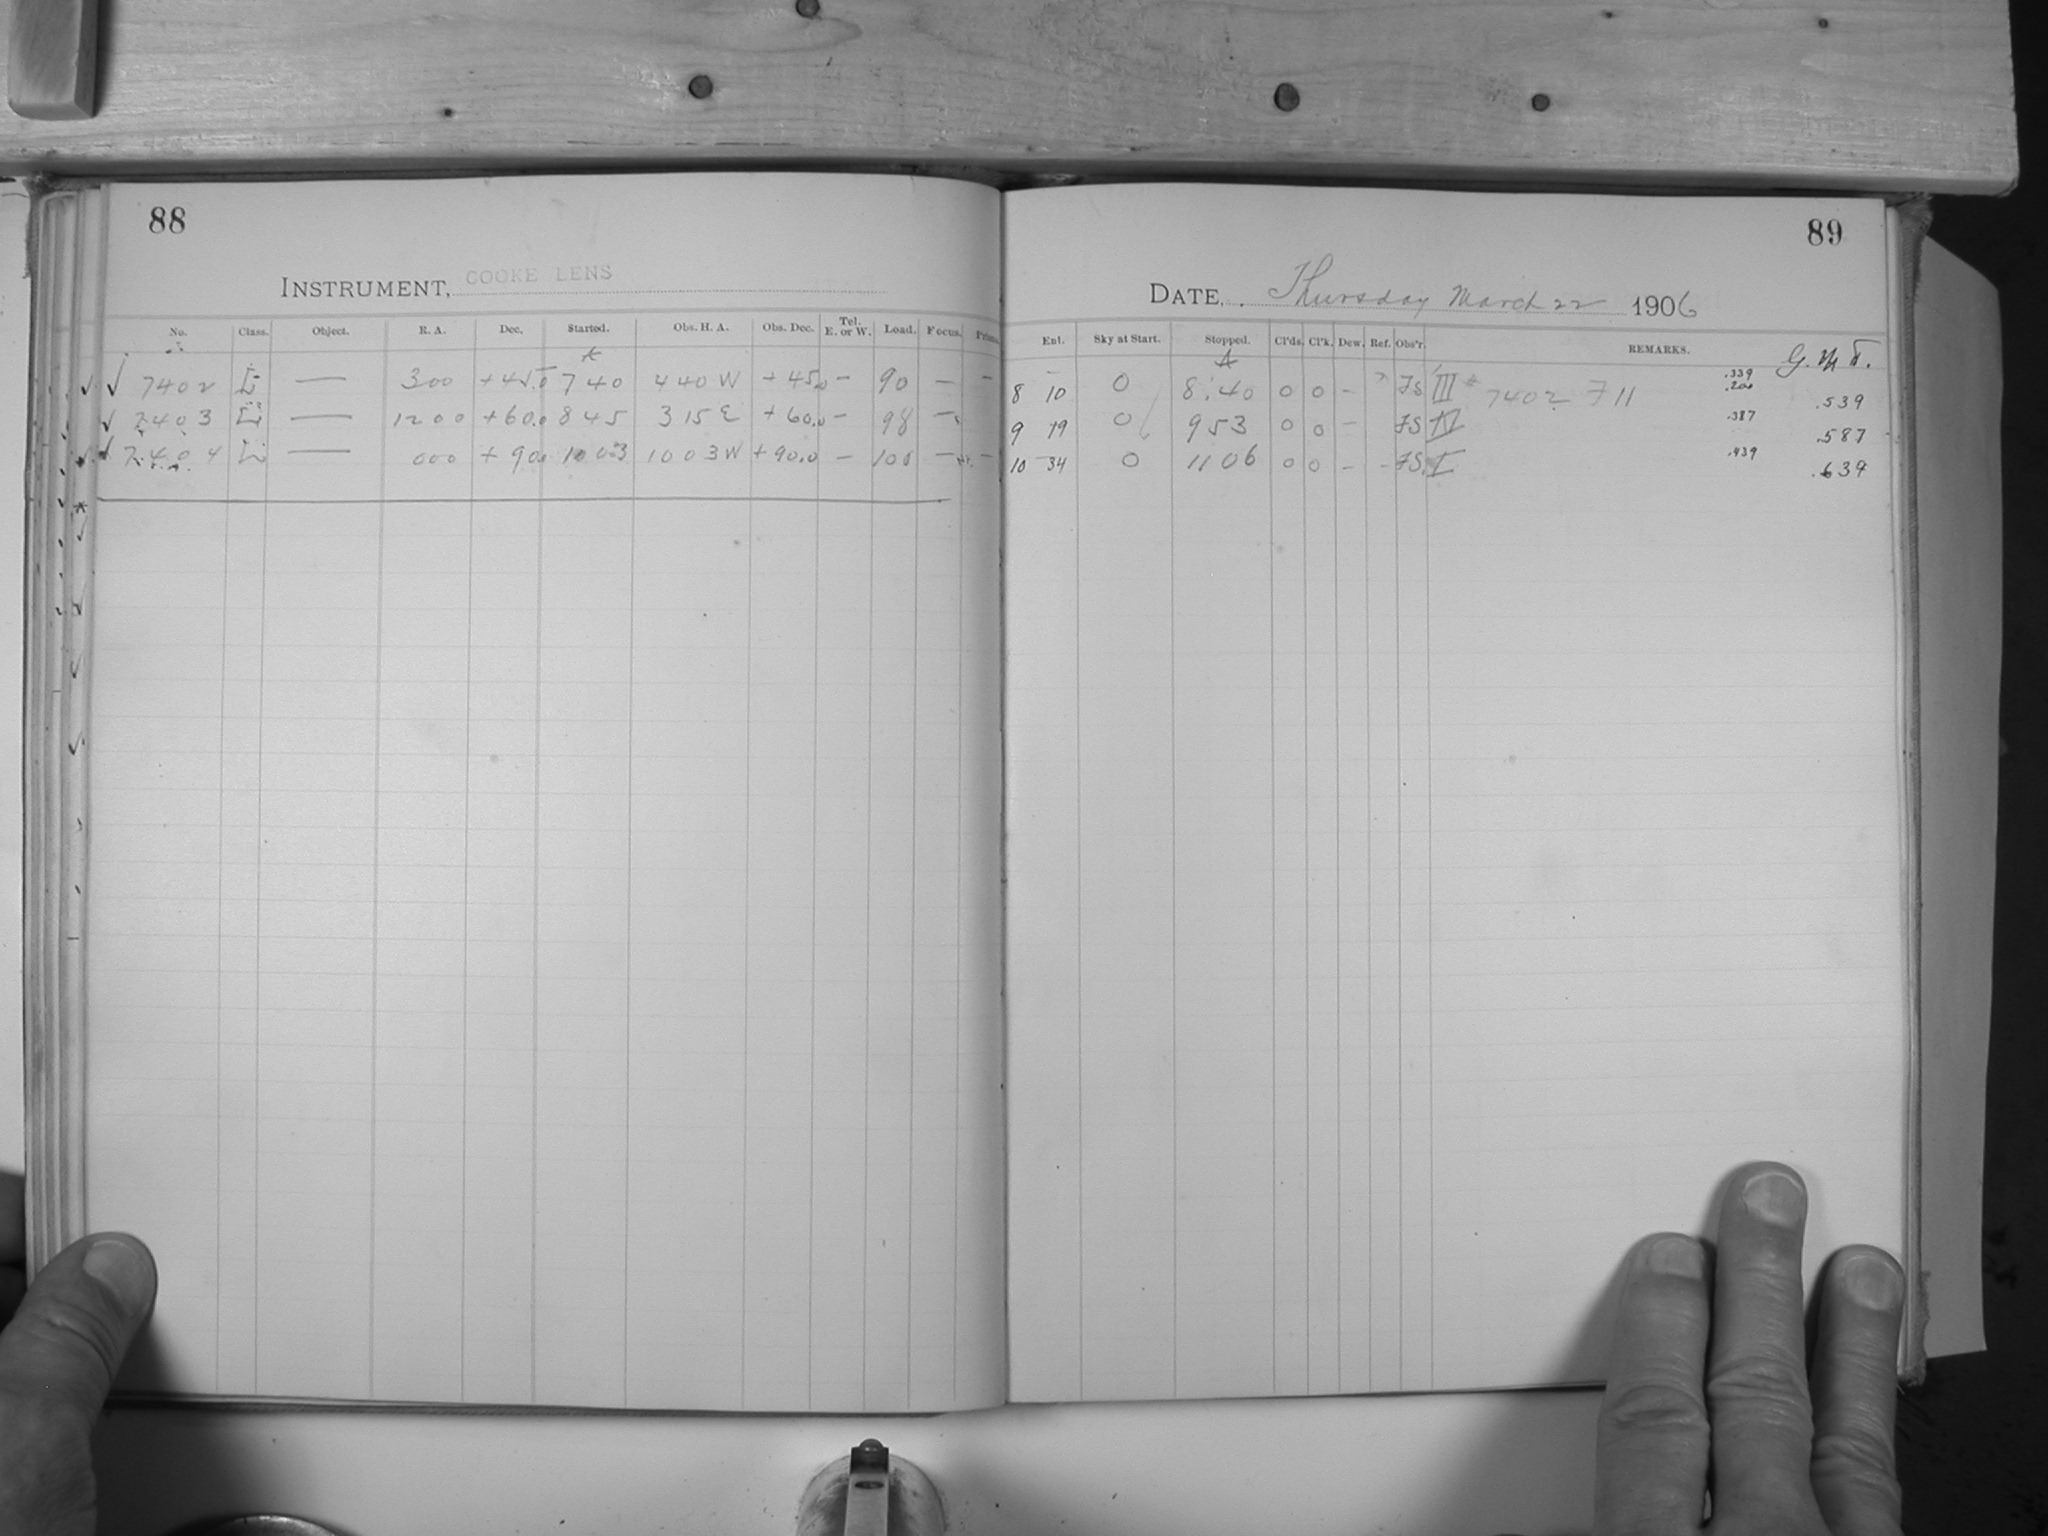 88
INSTRUMENT, COOKE LENS
No. Class. Object. R. A. Dec. Started. Obs. H. A. Obs. Dec. Tel. E. or W. Load. Focus. Prism.
7402 — 300 +45.0 740 440 W +45.0 — 90 — —
7403 — 1200 +60.0 845 315 E +60.0 — 98 —
7404 — 000 +90.0 1003 1003 W +90.0 — 100 — —
89
DATE, Thursday March 22 1906
Ent. Sky at Start. Stopped. Cl'ds. Cl'k. Dew. Ref. Obs'r. REMARKS. G. M. T.
8 10 0 8:40 0 0 — FS III * 7402 F 11 .339 .200 .539
9 19 0 953 0 0 — FS IV .387 .587
10 34 0 1106 0 0 — - FS. I .439 .639